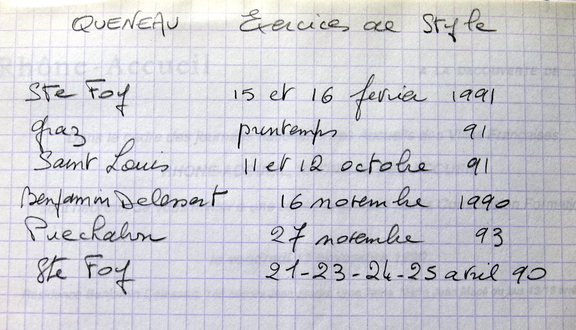 QUENEAU Exercices de Style
Ste Foy 15 et 16 fevrier 1991
Graz printemps 91
Saint Louis 11 et 12 octobre 91
Benjamin Delessert 16 novembre 1990
Puechabon 27 novembre 93
Ste Foy 21-23-24-25 avril 90
Rhône-Accueil